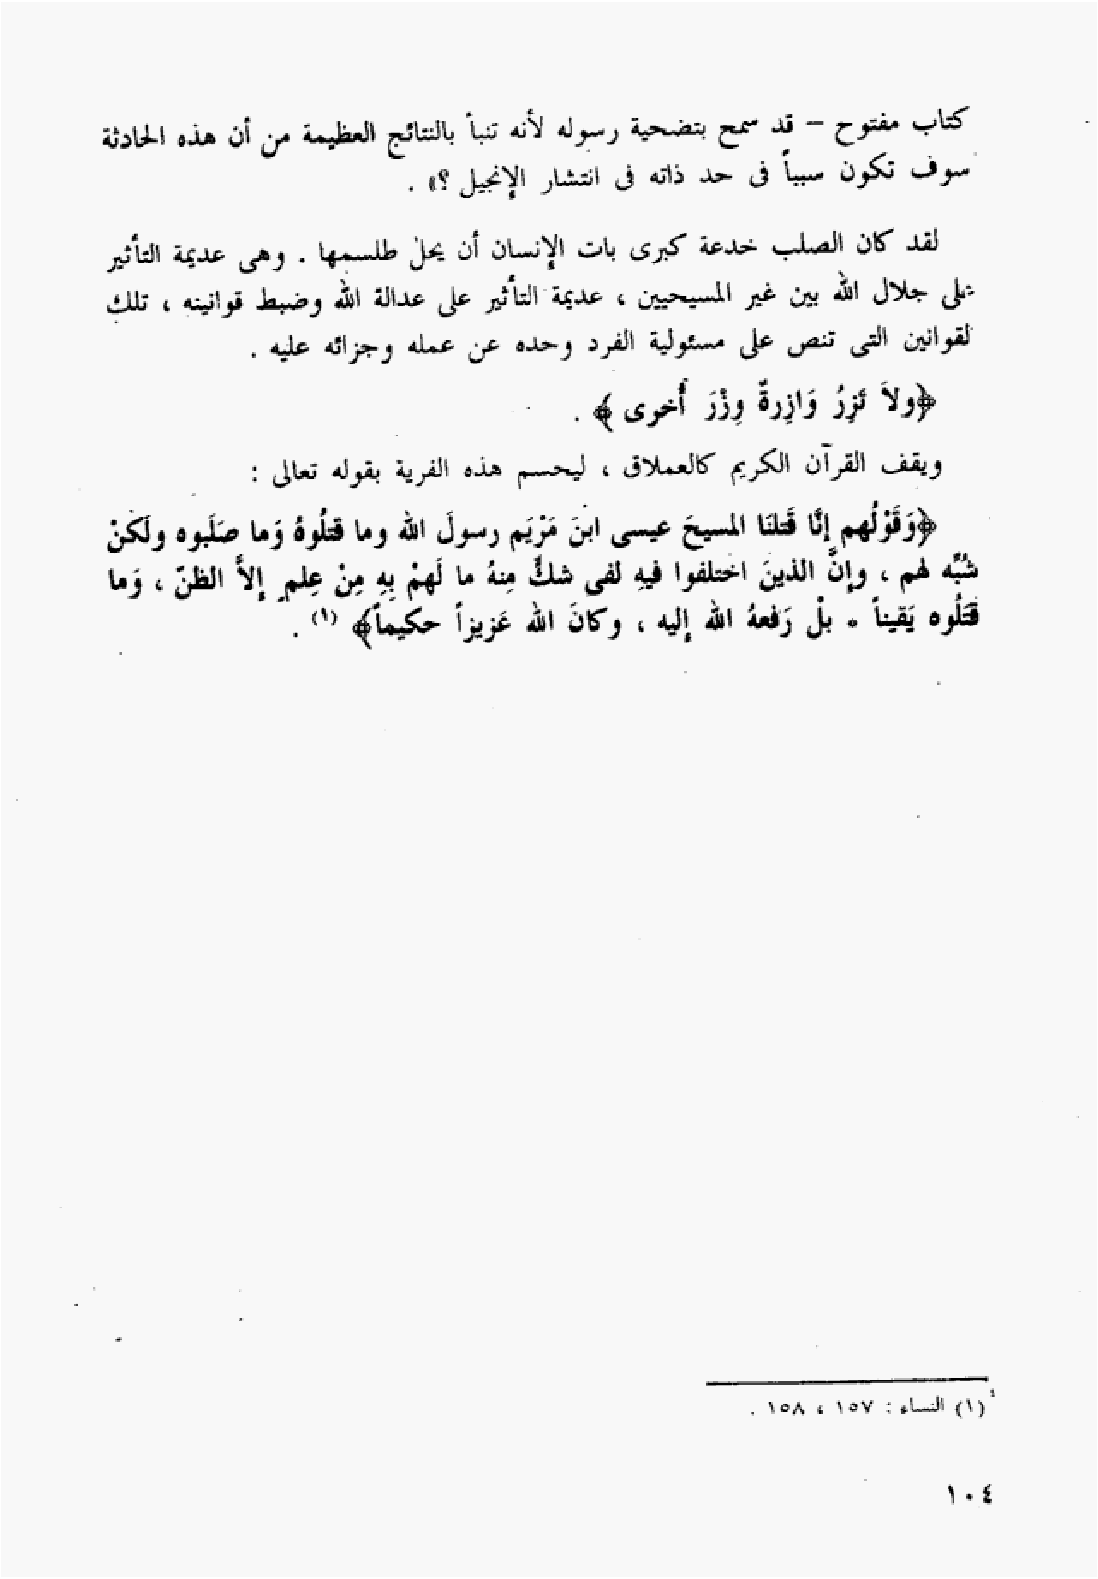 كتاب مفتوح – قد سمح بتضحية رسوله لأنه تنبأ بالنتائج العظيمة من أن هذه الحادثة
سوف تكون سبباً فى حد ذاته فى انتشار الإنجيل ؟» .
لقد كان الصلب خدعة كبرى بات الإنسان أن يحل طلسمها . وهى عديمة التأثير
على جلال الله بين غير المسيحيين ، عديمة التأثير على عدالة الله وضبط قوانينه ، تلك
لقوانين التى تنص على مسئولية الفرد وحده عن عمله وجزائه عليه .
﴿ولاَ تَزِرُ وَازِرةٌ وِزْرَ أُخرى ﴾ .
ويقف القرآن الكريم كالعملاق ، ليحسم هذه الفرية بقوله تعالى :
﴿وَقَوْلُهم إنَّا قَتلنَا المسيحَ عيسى ابنَ مَرْيَم رسولَ الله وما قتلُوهُ وَما صَلَبوه ولَكنْ
شُبِّه لهم ، وإنَّ الذينَ اختلفوا فيهِ لفى شكٍّ مِنهُ ما لَهمْ بِهِ مِنْ عِلمٍ إلاَّ الظنّ ، وَما
قَتَلُوه يَقيناً * بلْ رَفعهُ الله إليه ، وكانَ الله عَزيزاً حكيماً﴾ (١) .
(١) النساء : ١٥٧ ، ١٥٨ .
١٠٤